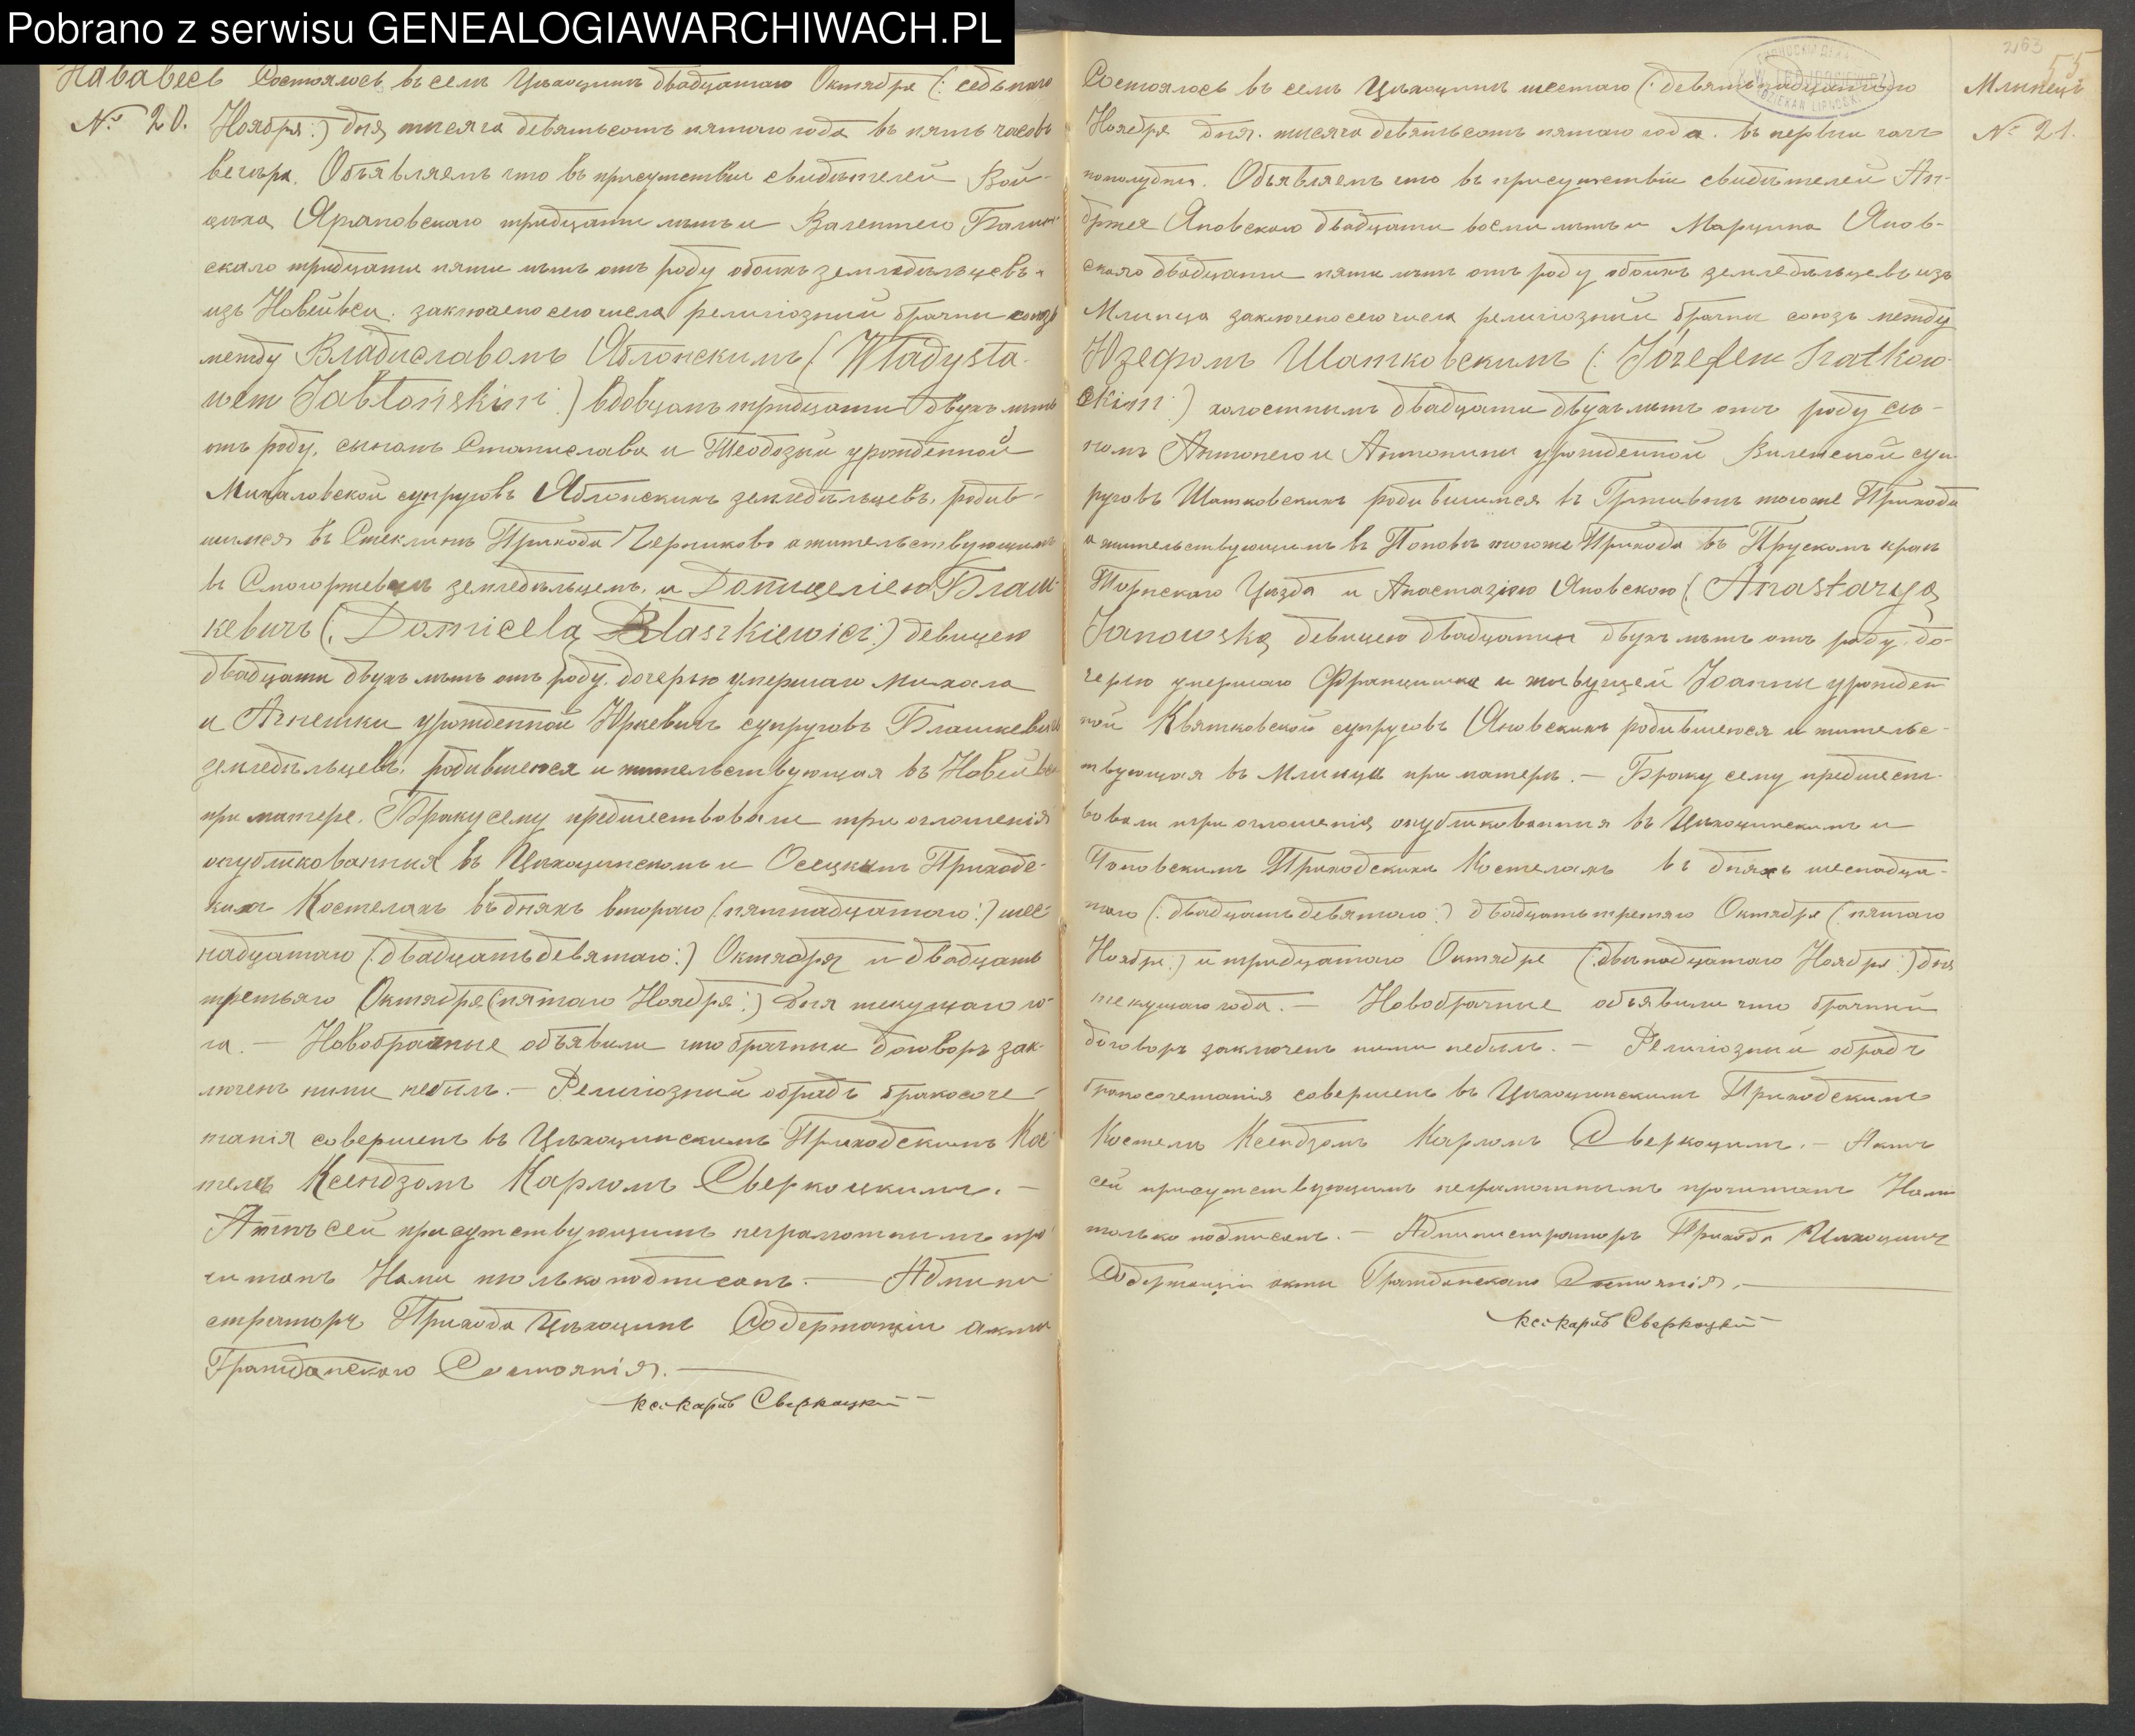 Pobrano z serwisu GENEALOGIAWARCHIWACH.PL
263
55
Нававесь
№ 20.
Состоялось въ селѣ Цѣхоцинѣ двадцатаго Октября (: седьмаго
Ноября :) дня тысяча девятьсотъ пятаго года въ пять часовъ
вечера. Объявляемъ что въ присутствіи свидѣтелей Вой-
цѣха тридцати лѣтъ и Валентего
скаго тридцати пяти лѣтъ отъ роду обоихъ земледѣльцевъ
изъ Новейвси, заключено сего числа религіозный брачны союзъ
между Владиславомъ Яблонскимъ (Władysła-
wem Jabłońskim :) вдовцомъ тридцати двухъ лѣтъ
отъ роду, сыномъ Станислава и Теодозіи урожденной
Михаловской супруговъ Яблонскихъ земледѣльцевъ, родив-
шимся въ Стеклинѣ Прихода Черниково а жительствующимъ
въ земледѣльцемъ, и Доницелею Блаш-
кевичъ (: Domicelą Błaszkiewicz :) девицею
двадцати двухъ лѣтъ отъ роду, дочерью умершаго Михала
и Агнешки урожденной Юркевичъ супруговъ Блашкевичъ
земледѣльцевъ, родившеюся и жительствующая въ Новейвси
при матере. Браку сему предшествовали три оглошенія
опубликованныя въ Цѣхоцинскомъ и Осецкимъ Приходс-
кихъ Костелахъ въ дняхъ втораго (пятнадцатаго :) шес-
надцатаго (: двадцать девятаго :) Октября и двадцать
третьяго Октября (пятаго Ноября :) дня текущаго го-
га. — Новобрачные объявили что брачны договоръ зак-
люченъ ними небылъ. — Религіозный обрядъ бракосоче-
танія совершенъ въ Цѣхоцинскимъ Приходскимъ Кос-
телѣ Ксендзомъ Карломъ Сверкоцкимъ. —
Актъ сей присутствующимъ неграмотнымъ про-
читанъ Нами только подписанъ. — Админи-
страторъ Прихода Цѣхоцинъ Содержащій акты
Гражданскаго Состоянія. —
Кс. Карлъ Сверкоцкій
Млинецъ
№ 21.
Состоялось въ селѣ Цѣхоцинѣ шестаго (: девятьнадцатаго
Ноября дня. тысяча девятьсотъ пятаго года. въ первы часъ
пополудни. Объявляемъ что въ присутствіи свидѣтелей Ан-
држея Яновскаго двадцати восми лѣтъ и Марцина Янов-
скаго двадцати пяти лѣтъ отъ роду обоихъ земледѣльцевъ изъ
Млинца заключено сего числа религіозный брачны союзъ между
Юзефомъ Шатковскимъ (: Józefem Szatkow-
skim :) холостымъ двадцати двухъ лѣтъ отъ роду сы-
номъ Антонего и Антонины урожденной Виленской суп-
руговъ Шатковскихъ родившимся въ тогоже Прихода
а жительствующимъ въ Поповѣ тогоже Прихода въ Прускомъ краѣ
Торнскаго Уѣзда и Анастазіею Яновскою (: Anastazyą
Janowską девицею двадцати двухъ лѣтъ отъ роду, до-
черью умершаго Францишка и живущей Іоанны урожден-
ной Квятковской супруговъ Яновскихъ родившеюся и жительс-
твующая въ Млинцѣ при матерѣ. — Браку сему предшест-
вовали три оглошенія опубликованныя въ Цѣхоцинскимъ и
Поповскимъ Приходскихъ Костелахъ въ дняхъ шеснадца-
таго (: двадцать девятаго :) двадцать третяго Октября (: пятаго
Ноября :) и тридцатаго Октября (: двѣнадцатаго Ноября :) дня
текущаго года. — Новобрачные объявили что брачный
договоръ заключенъ ними небылъ. — Религіозный обрядъ
бракосочетанія совершенъ въ Цѣхоцинскимъ Приходскимъ
Костелѣ Ксендзомъ Карломъ Сверкоцимъ. — Актъ
сей присутствующимъ неграмотнымъ прочитанъ Нами
только подписанъ. — Администраторъ Прихода Цѣхоцинъ
Содержащій акты Гражданскаго Состоянія. —
Кс. Карлъ Сверкоцкій